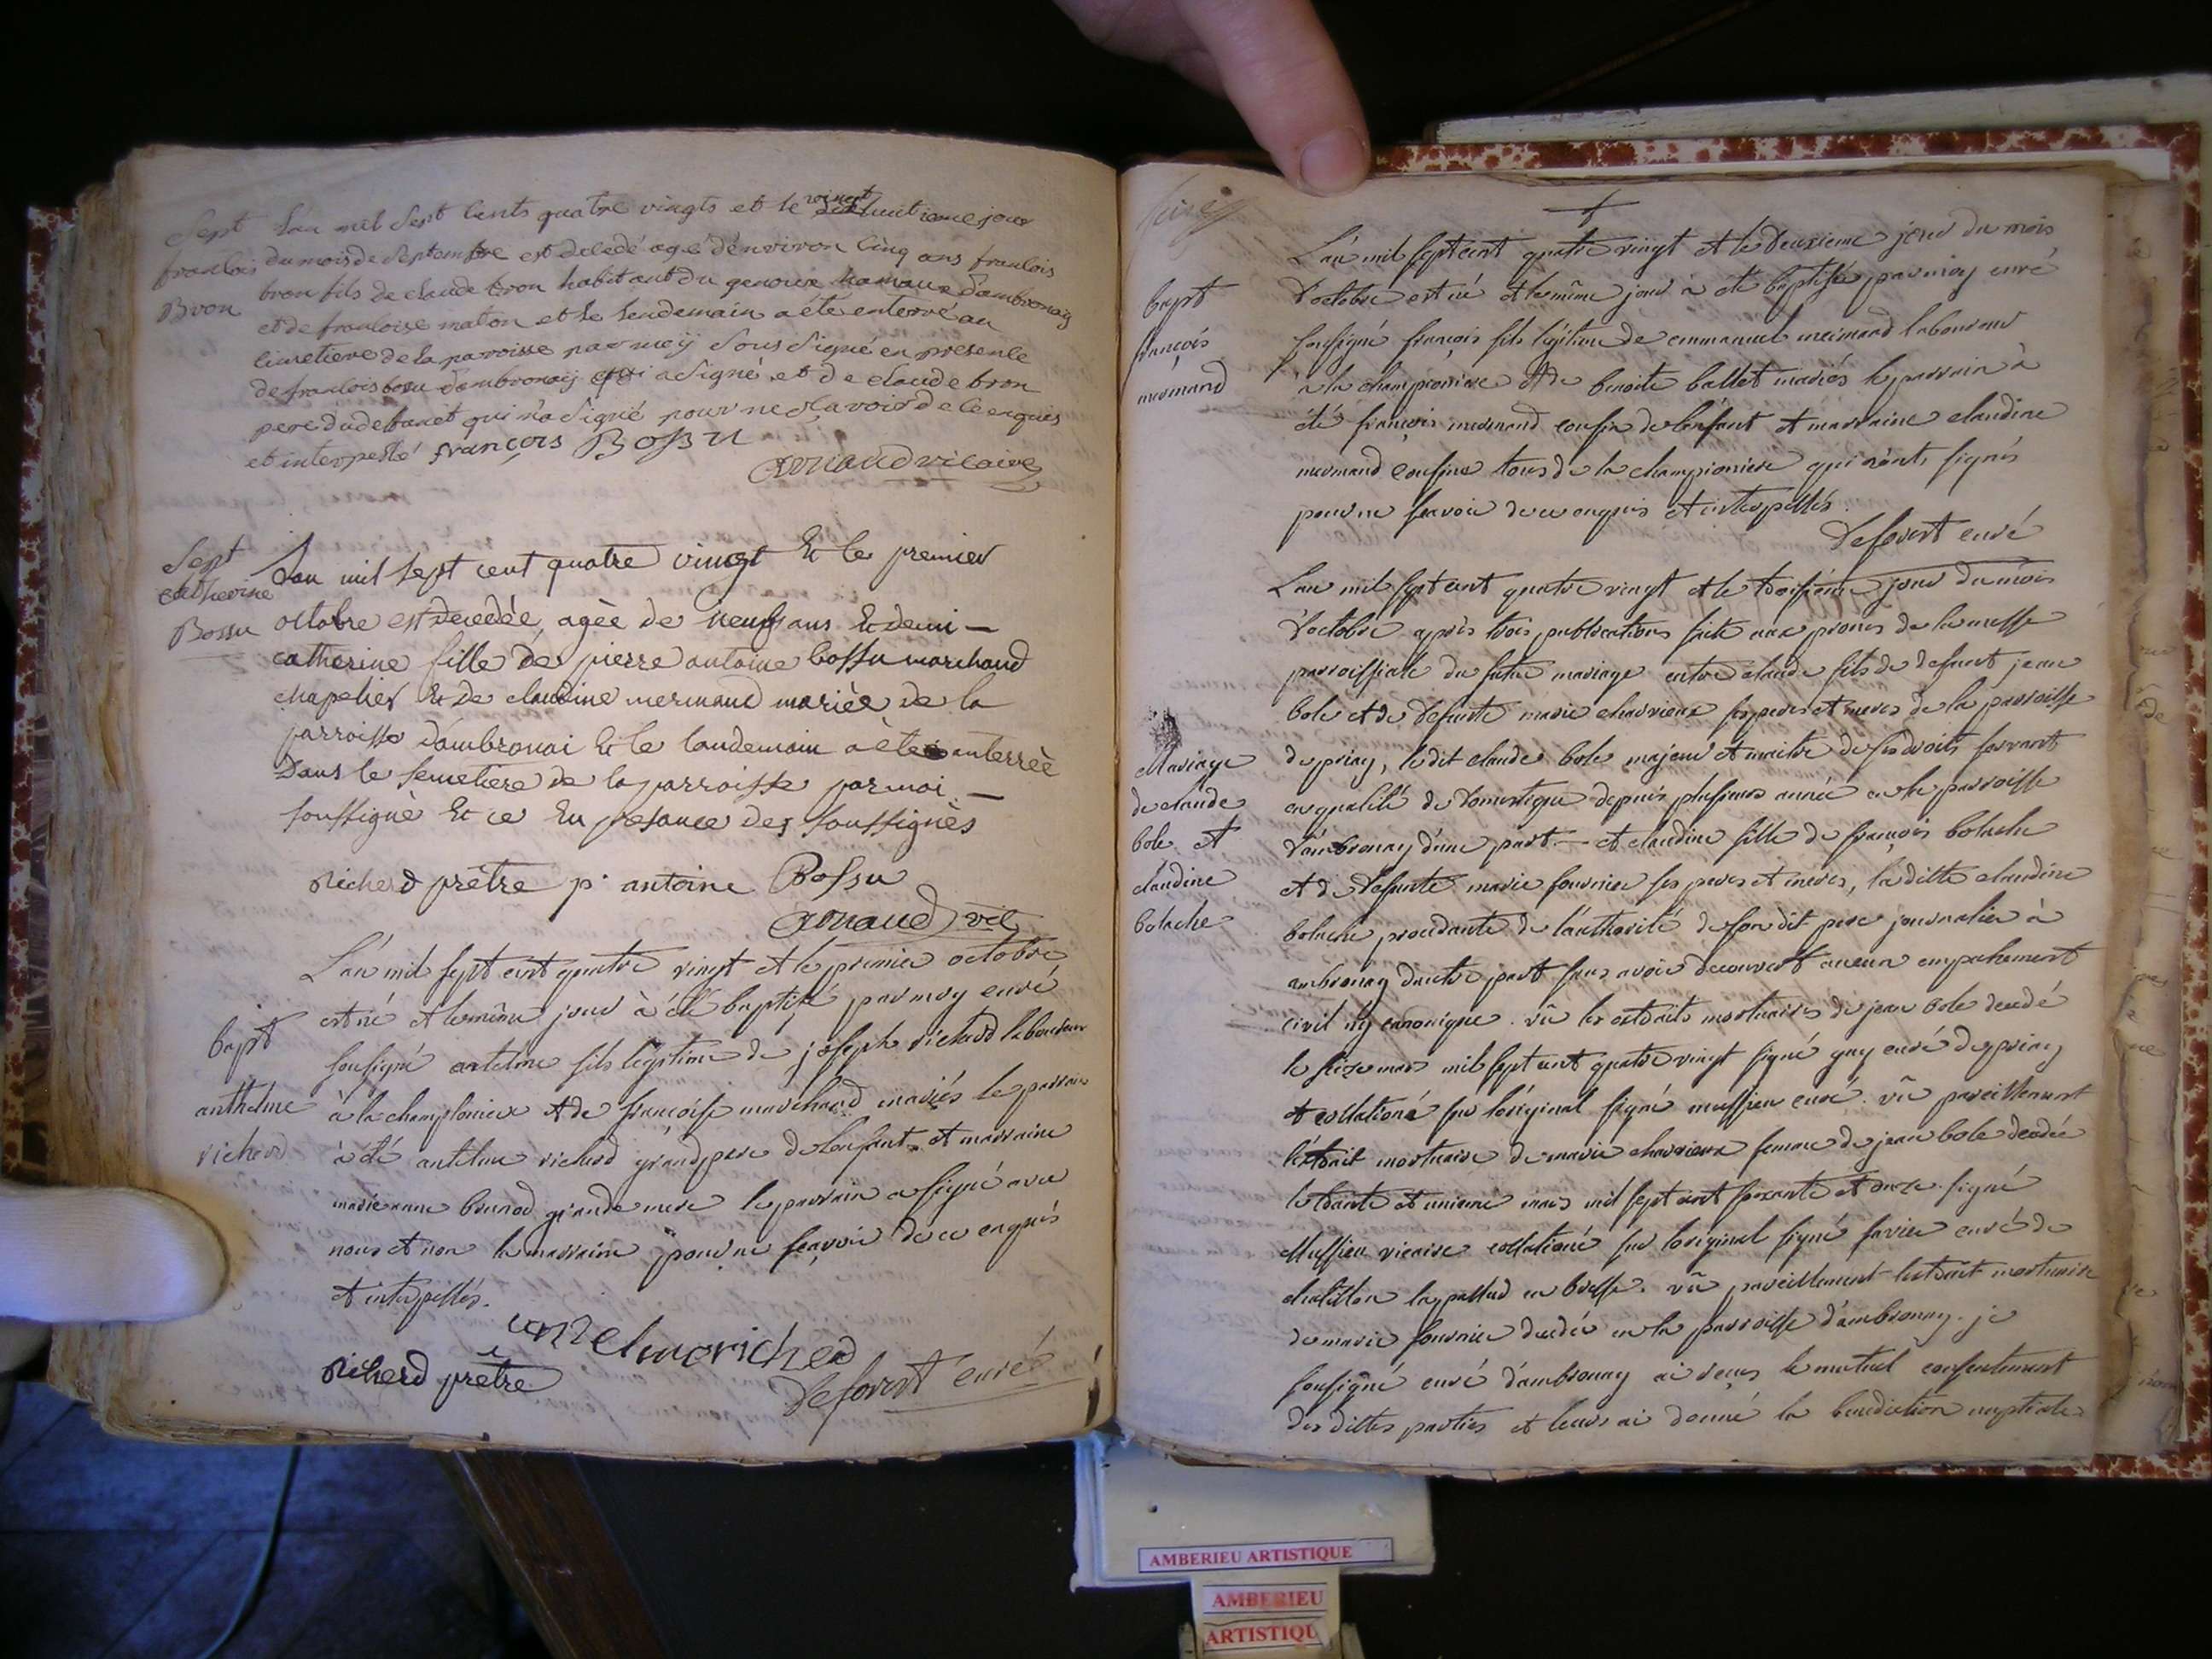 Sept
francois
Bron
Lan mil Sept Cents quatre vingts et le vingt huitieme jour
du mois de Septembre est decedé agé d'environ Cinq ans francois
bron fils de claude bron habitant du genoux hamaux d'ambronay
et de francoise maton et le lendemain a été enterré au
cimetiere de la paroisse par moy Sous Signé en presence
de francois bossu d'ambronay qui a Signé et de claude bron
pere du defunct qui n'a Signé pour ne Scavoir de ce enquis
et interpellé françois Bossu
Arnaud vicaire
Sept
Catherine
Bossu
Lan mil Sept cent quatre vingt Et le premier
octobre est decedée, agèe de neuf ans Et demi —
catherine fille de pierre antoine bossu marchand
chapelier Et de claudine mermand mariès de la
parroisse d'ambronai Et le landemain a ètè anterrèe
Dans le semetiere de la parroisse par moi —
soussignè Et ce En presance des soussignès
Richerd prêtre p. antoine Bossu
Arnaud vic
bapt
anthelme
richerd
L'an mil sept cent quatre vingt et le premier octobre
est né et le même jour à été baptisé par moy curé
sousigné antelme fils legitime de joseph richerd laboureur
à la championiere et de françoise marchand mariés le parrain
à été antelme richerd grand pere de l'enfant et marraine
marie anne brunod grande mere le parrain a signé avec
nous et non la marraine pour ne sçavoir de ce enquis
et interpellés.
antelme richerd
Richerd prêtre
Deforest curé
bapt
françois
mermand
L'an mil sept cent quatre vingt et le deuxieme jour du mois
d'octobre est né et le même jour à été baptisé par moy curé
sousigné françois fils légitime de emmanuel mermand laboureur
à la championiere et de benoite ballet mariés le parrain à
été françois mermand cousin de l'enfant et marraine claudine
mermand cousine tous de la championiere qui n'ont signés
pour ne sçavoir de ce enquis et interpellés.
Deforest curé
Mariage
de claude
bole et
claudine
bolache
L'an mil sept cent quatre vingt et le troisieme jour du mois
d'octobre après trois publications faite aux prones de la messe
parroissiale du futur mariage entre claude fils de defunt jean
bole et de defunte marie chavrieux ses peres et meres de la parroisse
de priay, le dit claude bole majeur et maitre de ses droits servant
en qualité de domestique depuis plusieurs année en la parroisse
d'ambronay d'une part — et claudine fille de françois bolache
et de defunte marie fournier ses peres et meres, la ditte claudine
bolache procedante de l'authorité de son dit pere journalier à
ambronay d'autre part sans avoir decouvert aucun empechement
civil ny canonique. vû les extraits mortuaires de jean bole decedé
le seize mars mil sept cent quatre vingt signé guy curé de priay
et collationé sur l'original signé muffieu curé. vû pareillement
l'extrait mortuaire de marie chavrieux femme de jean bole decedée
le trante et unieme mars mil sept cent soixante et onze signé
Muffieu vicaire collationé sur l'original signé favier curé de
chatillon la pallud en bresse. vû pareillement l'extrait mortuaire
de marie fournier decedée en la parroisse d'ambronay. je
sousigné curé d'ambronay ai reçus le mutuel consentement
des dittes parties et leurs ai donné la benediction nuptiale
AMBERIEU ARTISTIQUE
AMBERIEU
ARTISTIQU